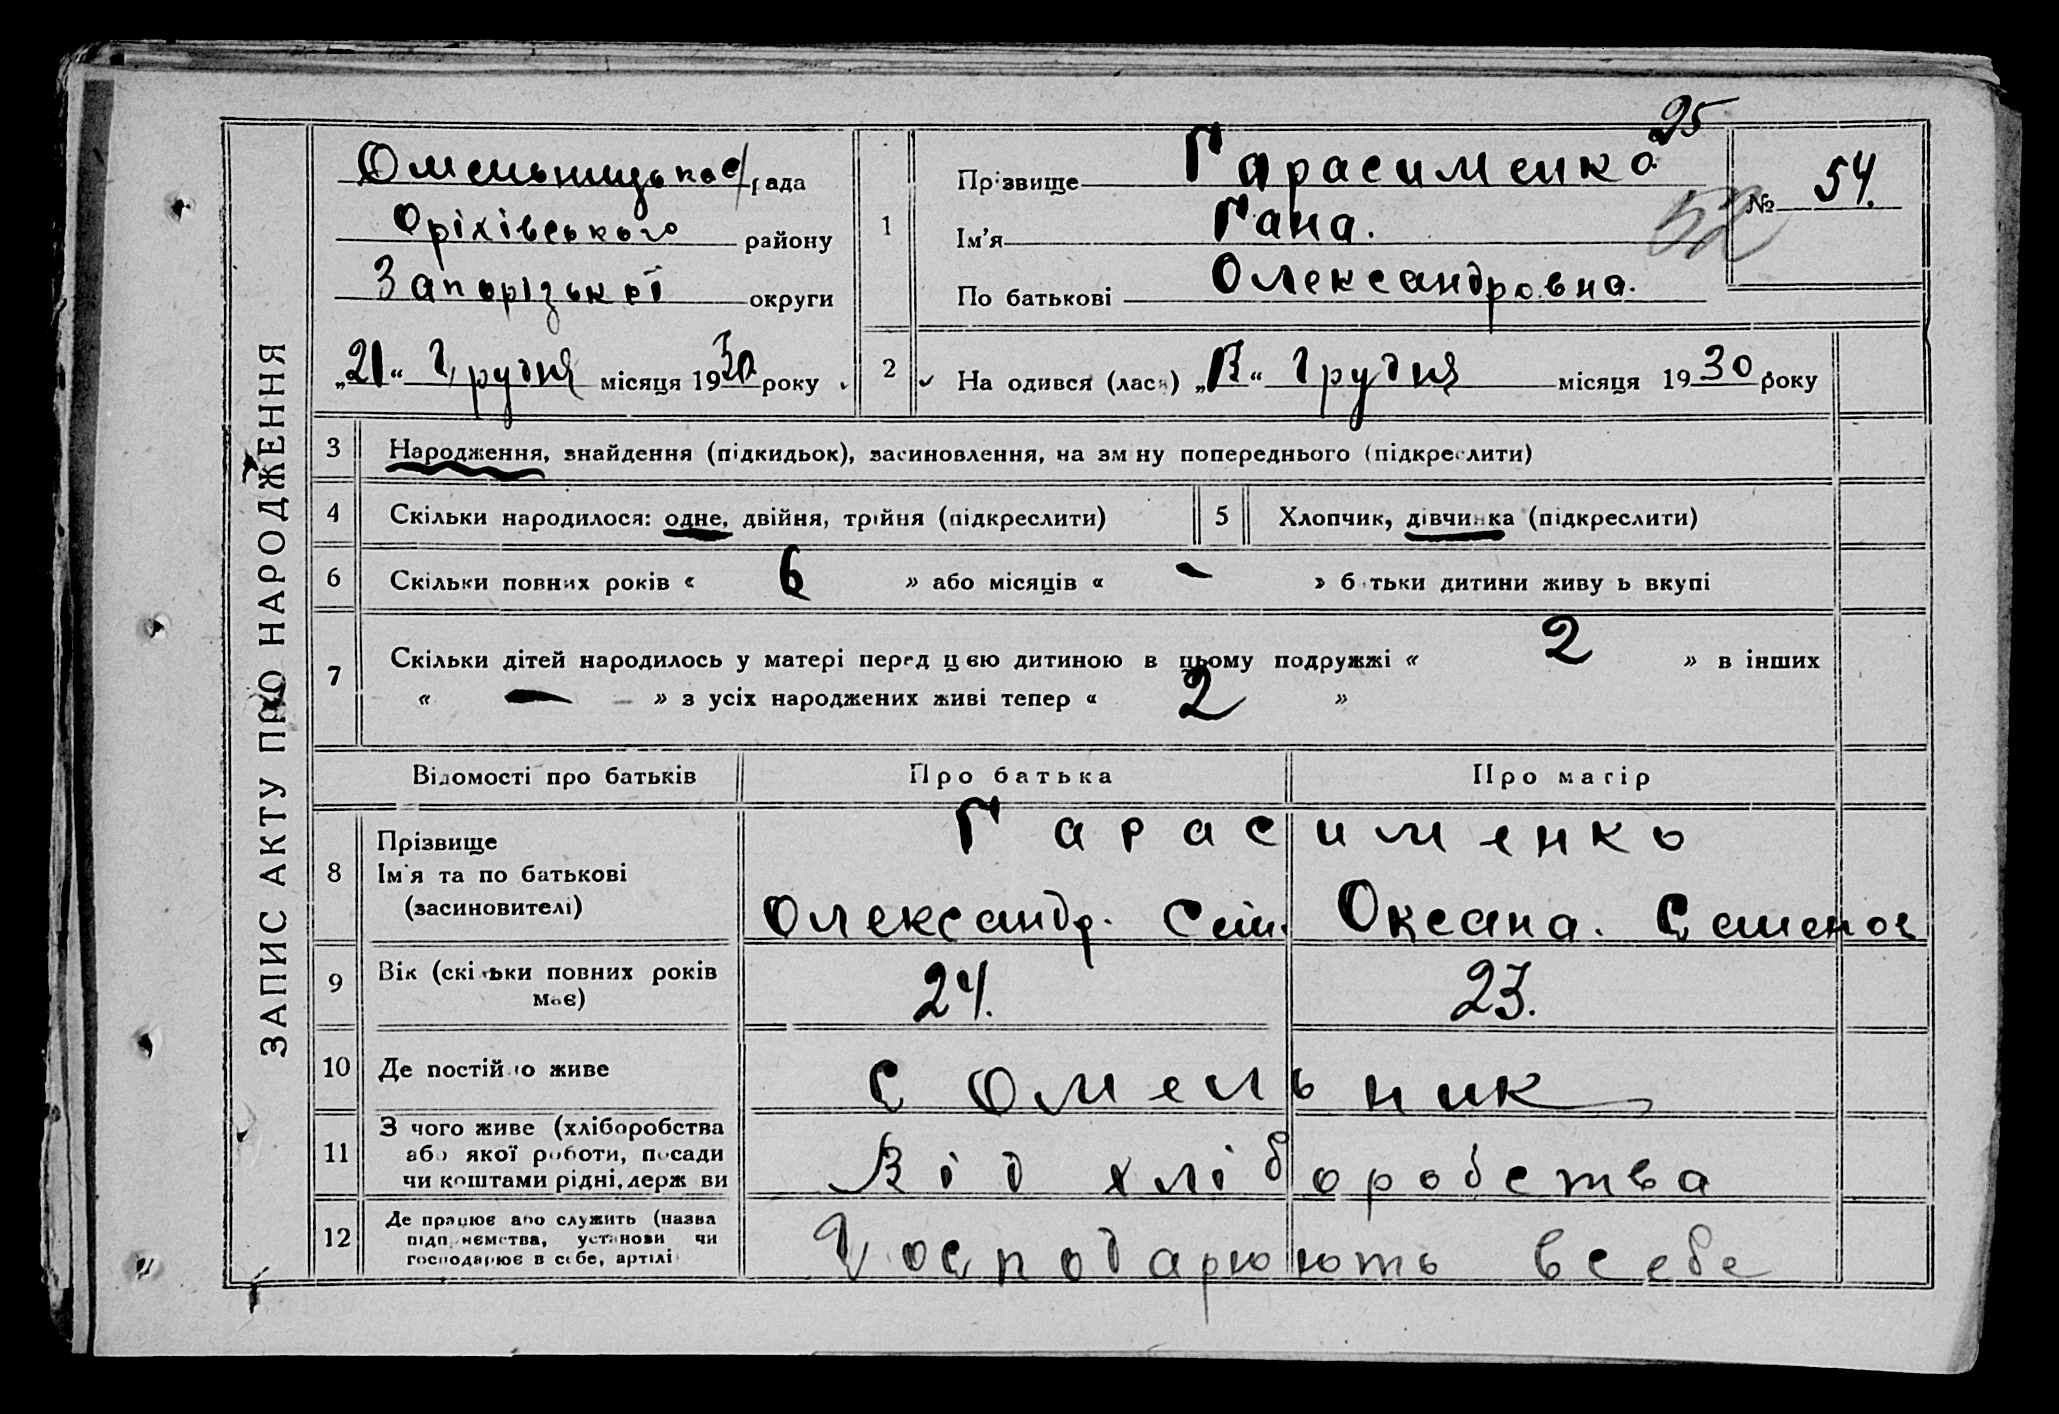 ЗАПИС АКТУ ПРО НАРОДЖЕННЯ
25
Омельницька с/рада
Оріхівського району
Запорізької округи
„21“ Грудня місяця 1930 року
1
Прізвище Гарасименко
Ім’я Гана.
По батькові Олександровна.
№ 54.
52
2 На одився (лася) „13“ Грудня місяця 1930 року
3 Народження, знайдення (підкидьок), засиновлення, на зміну попереднього (підкреслити)
4 Скільки народилося: одне, двійня, трійня (підкреслити)
5 Хлопчик, дівчинка (підкреслити)
6 Скільки повних років « 6 » або місяців « - » батьки дитини живуть вкупі
7 Скільки дітей народилось у матері перед цією дитиною в цьому подружжі « 2 » в інших
« — » з усіх народжених живі тепер « 2 »
Відомості про батьків Про батька Про матір
8 Прізвище
Ім'я та по батькові
(засиновителі)
Гарасименко
Олександр. Сем. Оксана. Семенов
9 Вік (скільки повних років
має)
24. 23.
10 Де постійно живе
с Омельник
11 З чого живе (хліборобства
або якої роботи, посади
чи коштами рідні, держави
Від хліборобства
12 Де працює або служить (назва
підприємства, установи чи
господарює в себе, артілі
Господарюють в себе